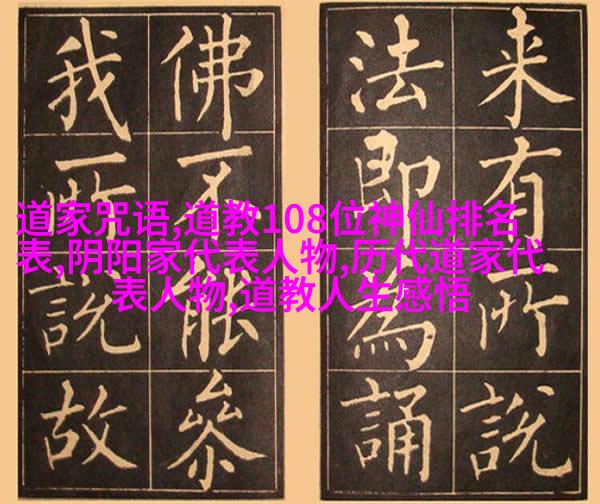 来有所說
法即為誦
佛不能叅
我所說故
道家咒语,道教108位神仙排名
表,阴阳家代表人物,历代道家代
表人物,道教人生感悟